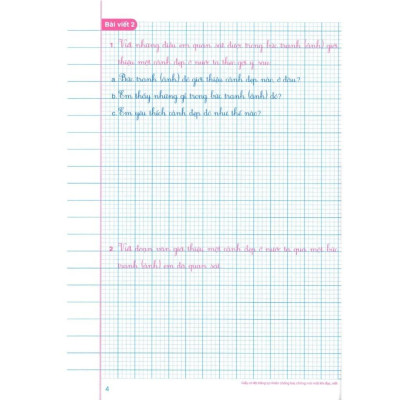 Bài viết 2
1 Viết những điều em quan sát được trong bức tranh (ảnh) giới
thiệu một cảnh đẹp ở nước ta theo gợi ý sau:
a. Bức tranh (ảnh) đó giới thiệu cảnh đẹp nào, ở đâu?
b. Em thấy những gì trong bức tranh (ảnh) đó?
c. Em yêu thích cảnh đẹp đó như thế nào?
2 Viết đoạn văn giới thiệu một cảnh đẹp ở nước ta qua một bức
tranh (ảnh) em đã quan sát.
4